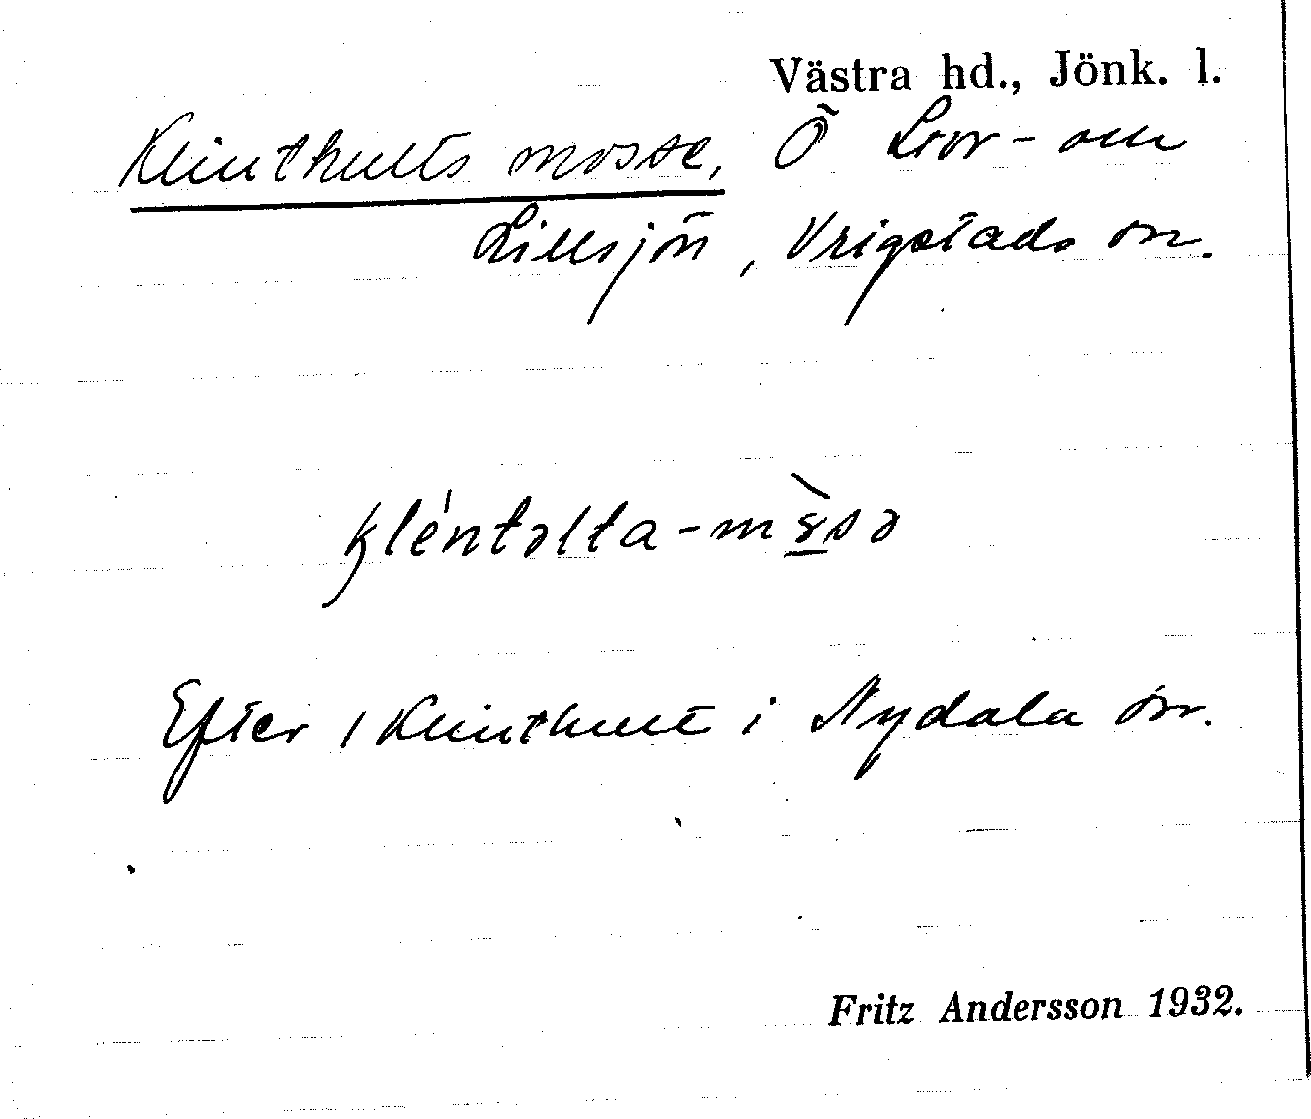 Västra hd., Jönk. l.
Klinthults mosse, Ö om
Lillsjön, Vrigstads sn.
kléntəlta-mɤ̱̀sə
Efter / Klinthult i Nydala sn.
Fritz Andersson 1932.